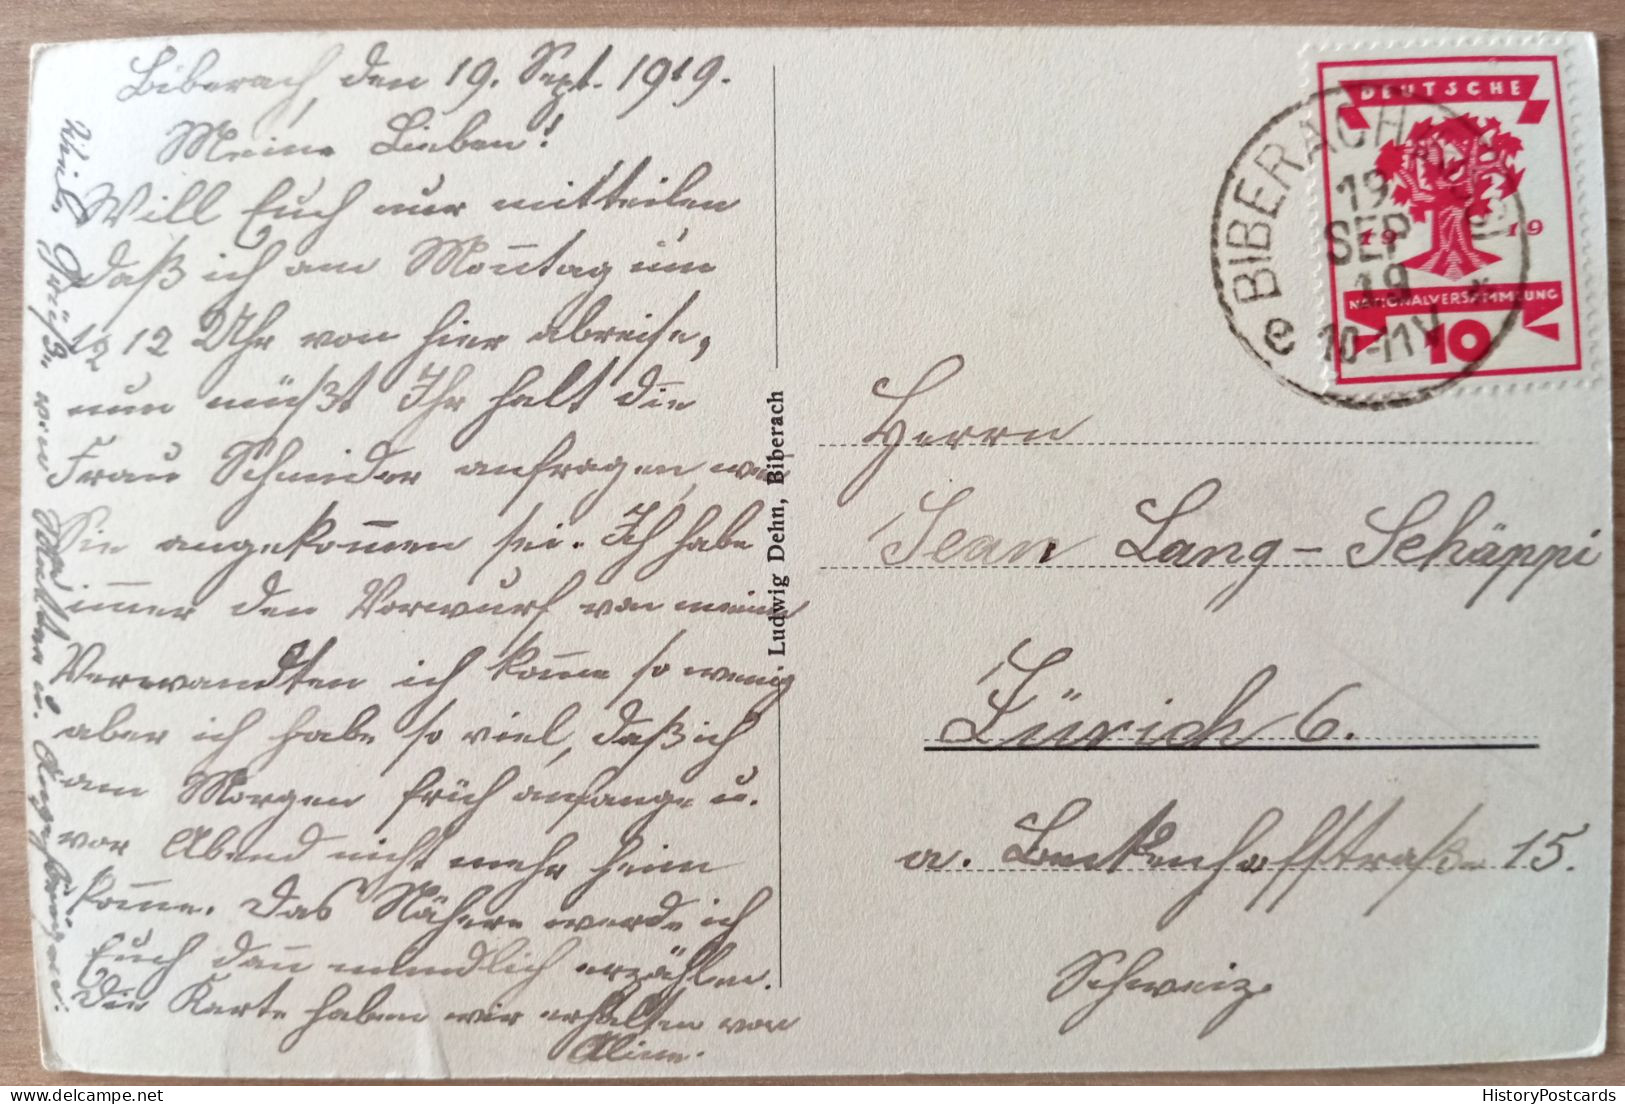 Biberach, den 19. Sept. 1919.
Meine Lieben!
Will Euch nur mitteilen
daß ich am Montag um
1/2 12 Uhr von hier abreise,
nun müßt Ihr halt die
Frau Schneider anfragen, wo
Sie angekommen sei. Ich habe
immer den Vorwurf von meinen
Verwandten ich komme so wenig
aber ich habe so viel, daß ich
am Morgen früh anfange u.
vor Abend nicht mehr heim
komme. Das Nähere werde ich
Euch dann mündlich erzählen.
Die Karte haben wir erhalten von
Aline.
Viele Grüße von u. Angehörigen.
Ludwig Dehn, Biberach
DEUTSCHE
1919
NATIONALVERSAMMLUNG
10
BIBERACH
19
SEP
19
10-11V
e
Herrn
Jean Lang-Schäppi
Zürich 6.
a. Beckenhofstraße 15.
Schweiz.
HistoryPostcards